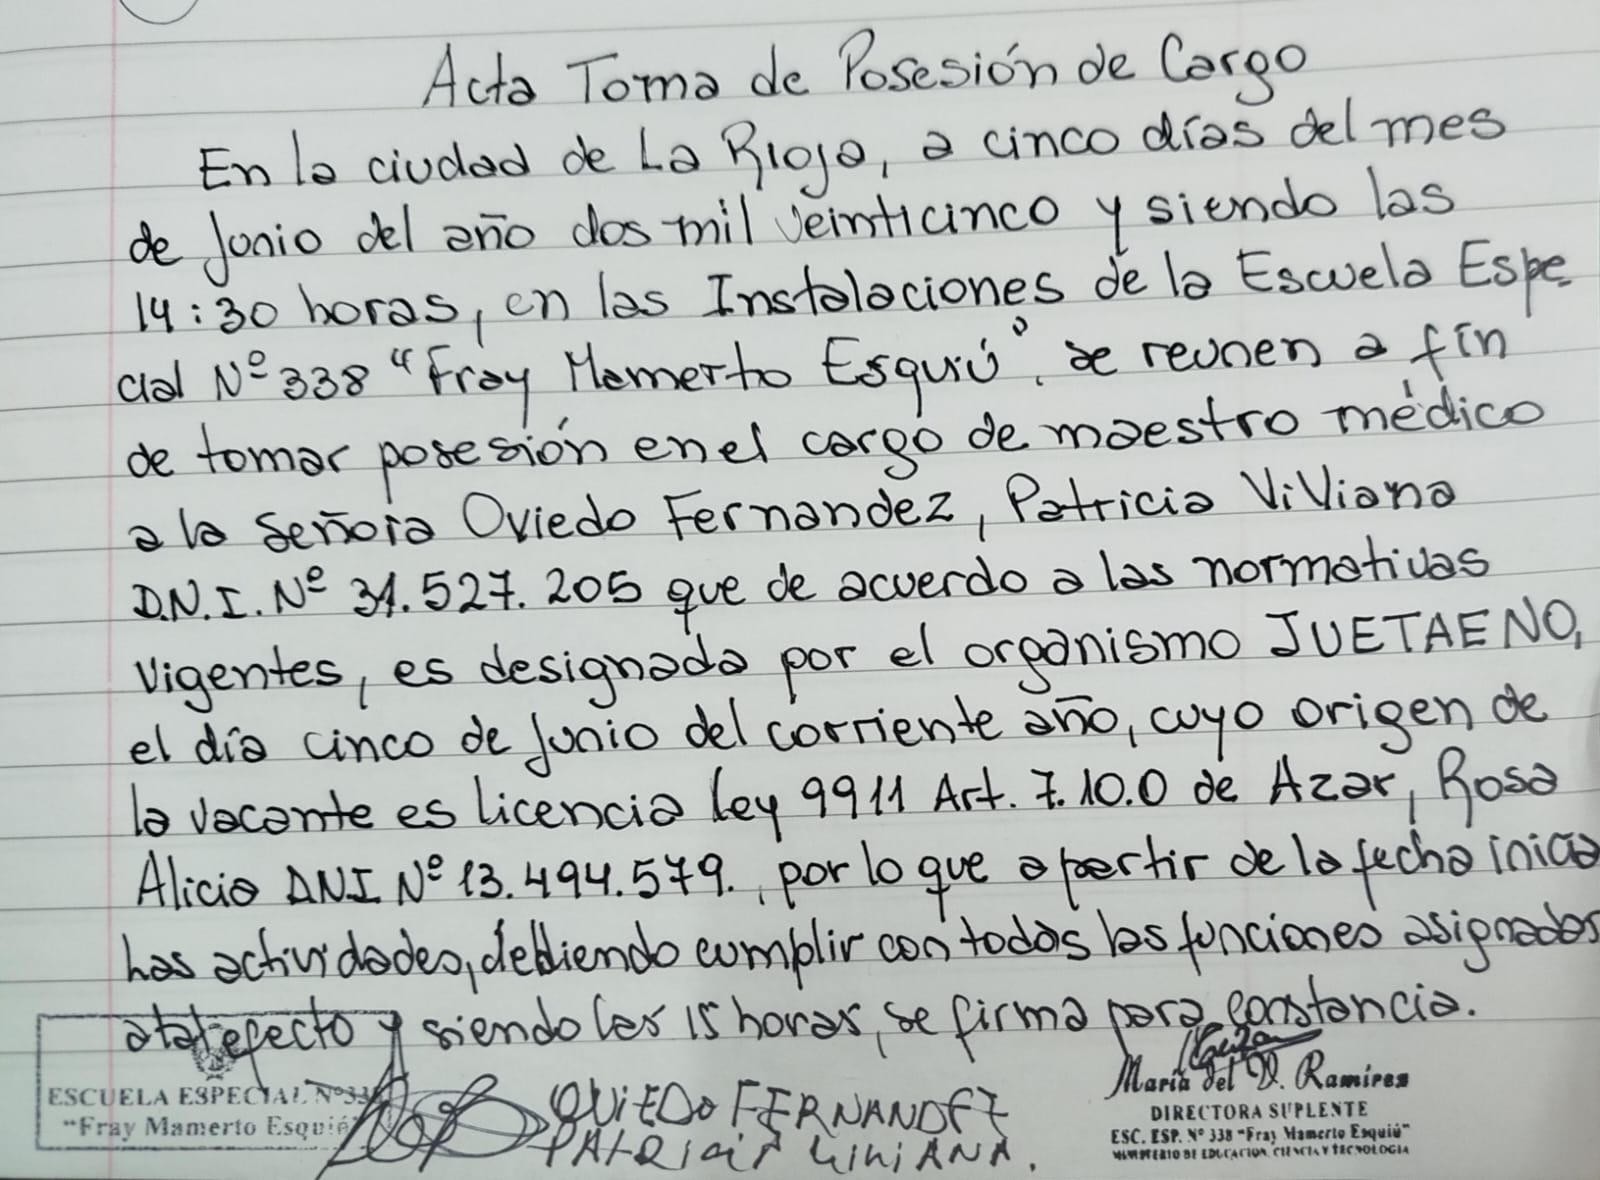 Acta Toma de Posesión de Cargo
En la ciudad de La Rioja, a cinco días del mes
de Junio del año dos mil veinticinco y siendo las
14:30 horas, en las Instalaciones de la Escuela Espe
cial Nº 338 "Fray Mamerto Esquiú", se reunen a fín
de tomar posesión en el cargo de maestro médico
a la Señora Oviedo Fernandez, Patricia Viviana
D.N.I. Nº 31.527.205 que de acuerdo a las normativas
vigentes, es designada por el organismo JUETAENO,
el día cinco de Junio del corriente año, cuyo origen de
la vacante es licencia Ley 9911 Art. 7.10.0 de Azar, Rosa
Alicia DNI Nº 13.494.579., por lo que a partir de la fecha inicia
has actividades, debiendo cumplir con todas las funciones asignadas
a tal efecto y siendo las 15 horas, se firma para constancia.
ESCUELA ESPECIAL Nº 338
"Fray Mamerto Esquiú
OVIEDO FERNANDEZ
PATRICIA VIVIANA.
María del D. Ramires
DIRECTORA SUPLENTE
ESC. ESP. Nº 338 "Fray Mamerto Esquiú"
MINISTERIO DE EDUCACION, CIENCIA Y TECNOLOGIA